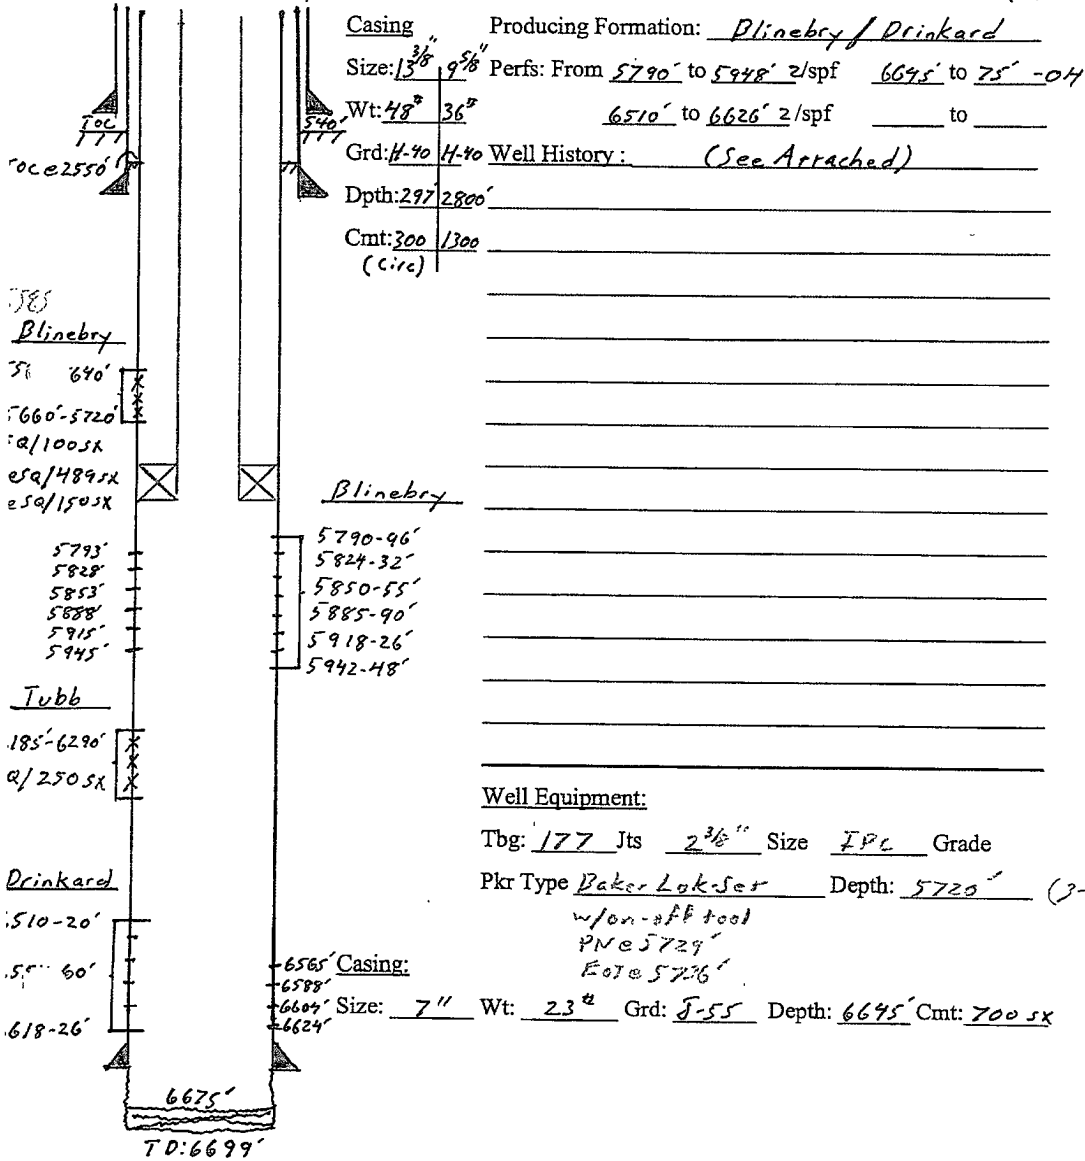 Casing Producing Formation: Blinebry / Drinkard
Size: 13 3/8" 9 5/8" Perfs: From 5790' to 5948' 2/spf 6645' to 75' -OH
Wt: 48# 36# 6510' to 6626' 2/spf to
Grd: H-40 H-40 Well History: (See Attached)
Dpth: 297' 2800'
Cmt: 300 1300
(Circ)
TOC 540'
TOC@2550'
Blinebry
640'
5660'-5720'
SQ/100sx
ReSQ/489sx
ReSQ/150sx
5793'
5828'
5853'
5888'
5915'
5945'
Blinebry
5790-96'
5824-32'
5850-55'
5885-90'
5918-26'
5942-48'
Tubb
185'-6290'
Q/250sx
Drinkard
510-20'
60'
618-26'
6565'
6588'
6604'
6624'
6675'
TD:6699'
Well Equipment:
Tbg: 177 Jts 2 3/8" Size IPC Grade
Pkr Type Baker Lok-Set Depth: 5720' (3-
w/on-off tool
PN@5729'
EOT@
Casing:
Size: 7" Wt: 23# Grd: J-55 Depth: 6645' Cmt: 700 sx